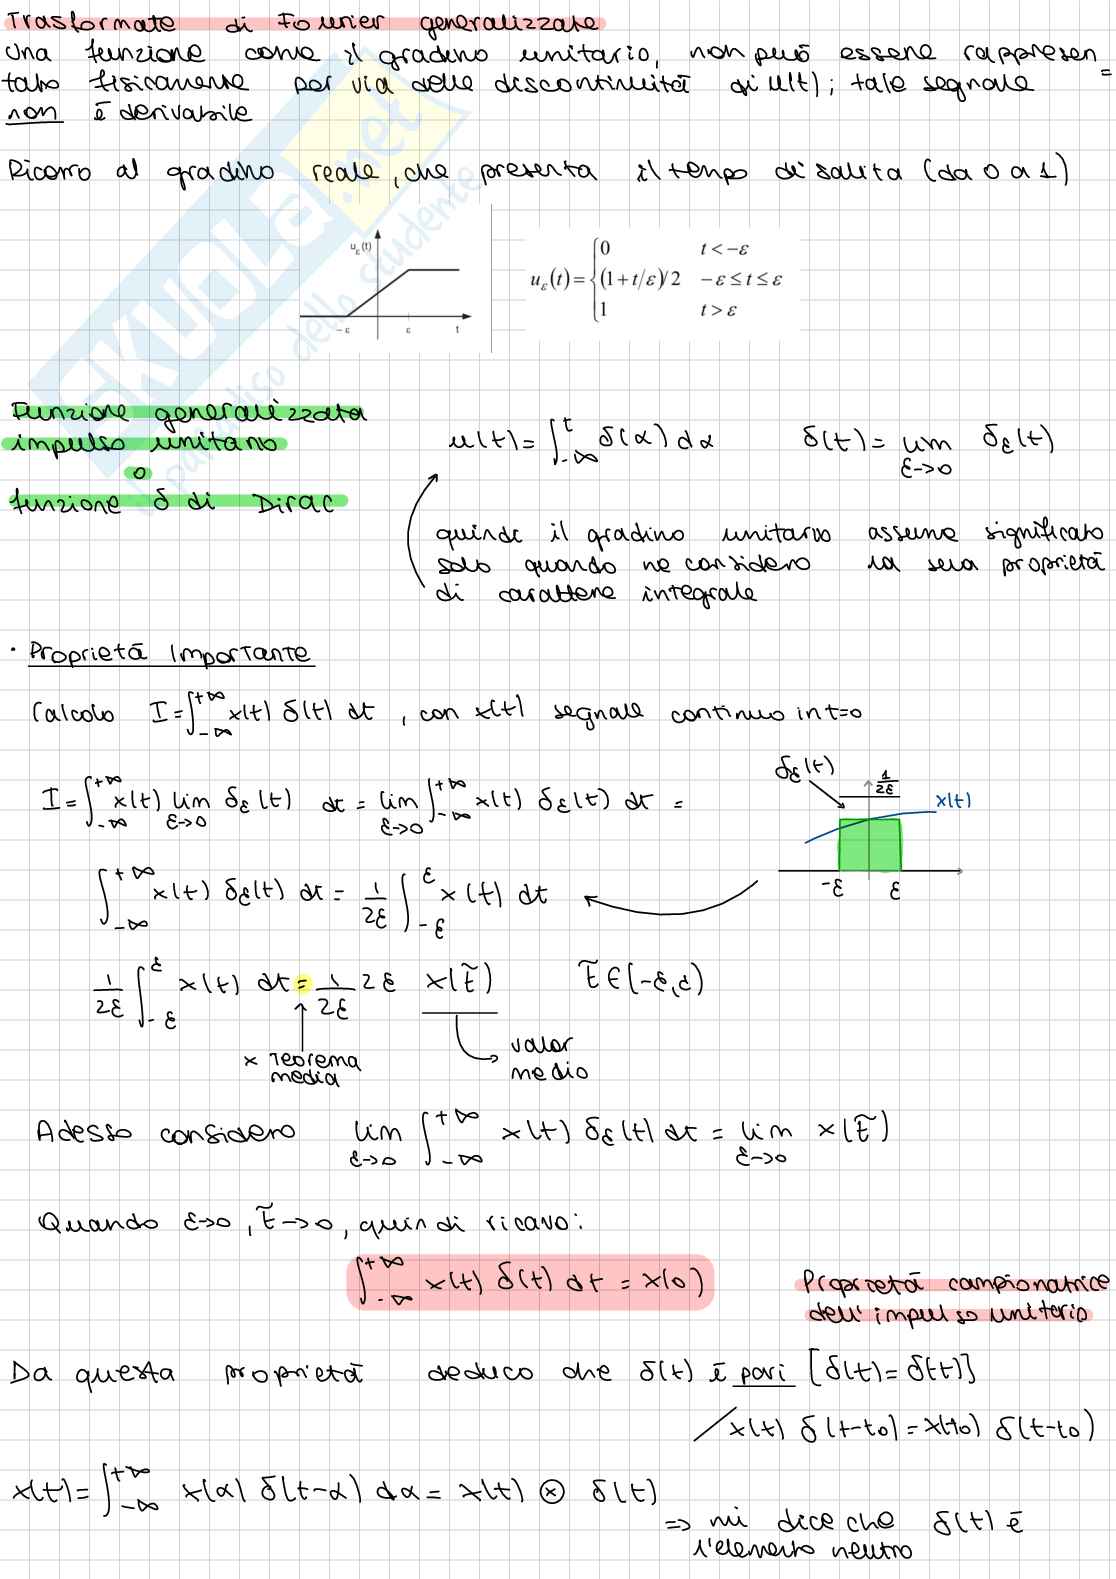 Trasformate di Fourier generalizzate
Una funzione come il gradino unitario, non può essere rappresen=
tato fisicamente per via delle discontinuità di u(t); tale segnale
non è derivabile
Ricorro al gradino reale, che presenta il tempo di salita (da 0 a 1)
u_ε(t)
-ε ε t
u_ε(t) = { 0 t < -ε
(1+t/ε)/2 -ε ≤ t ≤ ε
1 t > ε
Funzione generalizzata
impulso unitario
o
funzione δ di Dirac
u(t) = ∫_{-∞}^{t} δ(α) dα δ(t) = lim_{ε→0} δ_ε(t)
quindi il gradino unitario assume significato
solo quando ne considero la sua proprietà
di carattere integrale
· Proprietà Importante
Calcolo I = ∫_{-∞}^{+∞} x(t) δ(t) dt , con x(t) segnale continuo in t=0
I = ∫_{-∞}^{+∞} x(t) lim_{ε→0} δ_ε(t) dt = lim_{ε→0} ∫_{-∞}^{+∞} x(t) δ_ε(t) dt =
δ_ε(t)
1/2ε
x(t)
-ε ε
∫_{-∞}^{+∞} x(t) δ_ε(t) dt = 1/2ε ∫_{-ε}^{ε} x(t) dt
1/2ε ∫_{-ε}^{ε} x(t) dt = 1/2ε 2ε x(t̃) t̃ ∈ (-ε, ε)
x Teorema
media
valor
medio
Adesso considero lim_{ε→0} ∫_{-∞}^{+∞} x(t) δ_ε(t) dt = lim_{ε→0} x(t̃)
Quando ε→0, t̃→0, quindi ricavo:
∫_{-∞}^{+∞} x(t) δ(t) dt = x(0)
Proprietà campionatrice
dell'impulso unitario
Da questa proprietà deduco che δ(t) è pari [δ(t) = δ(-t)]
x(t) δ(t-t0) = x(t0) δ(t-t0)
x(t) = ∫_{-∞}^{+∞} x(α) δ(t-α) dα = x(t) ⊗ δ(t)
⇒ mi dice che δ(t) è
l'elemento neutro
SKUOLA.net
il paradiso dello studente